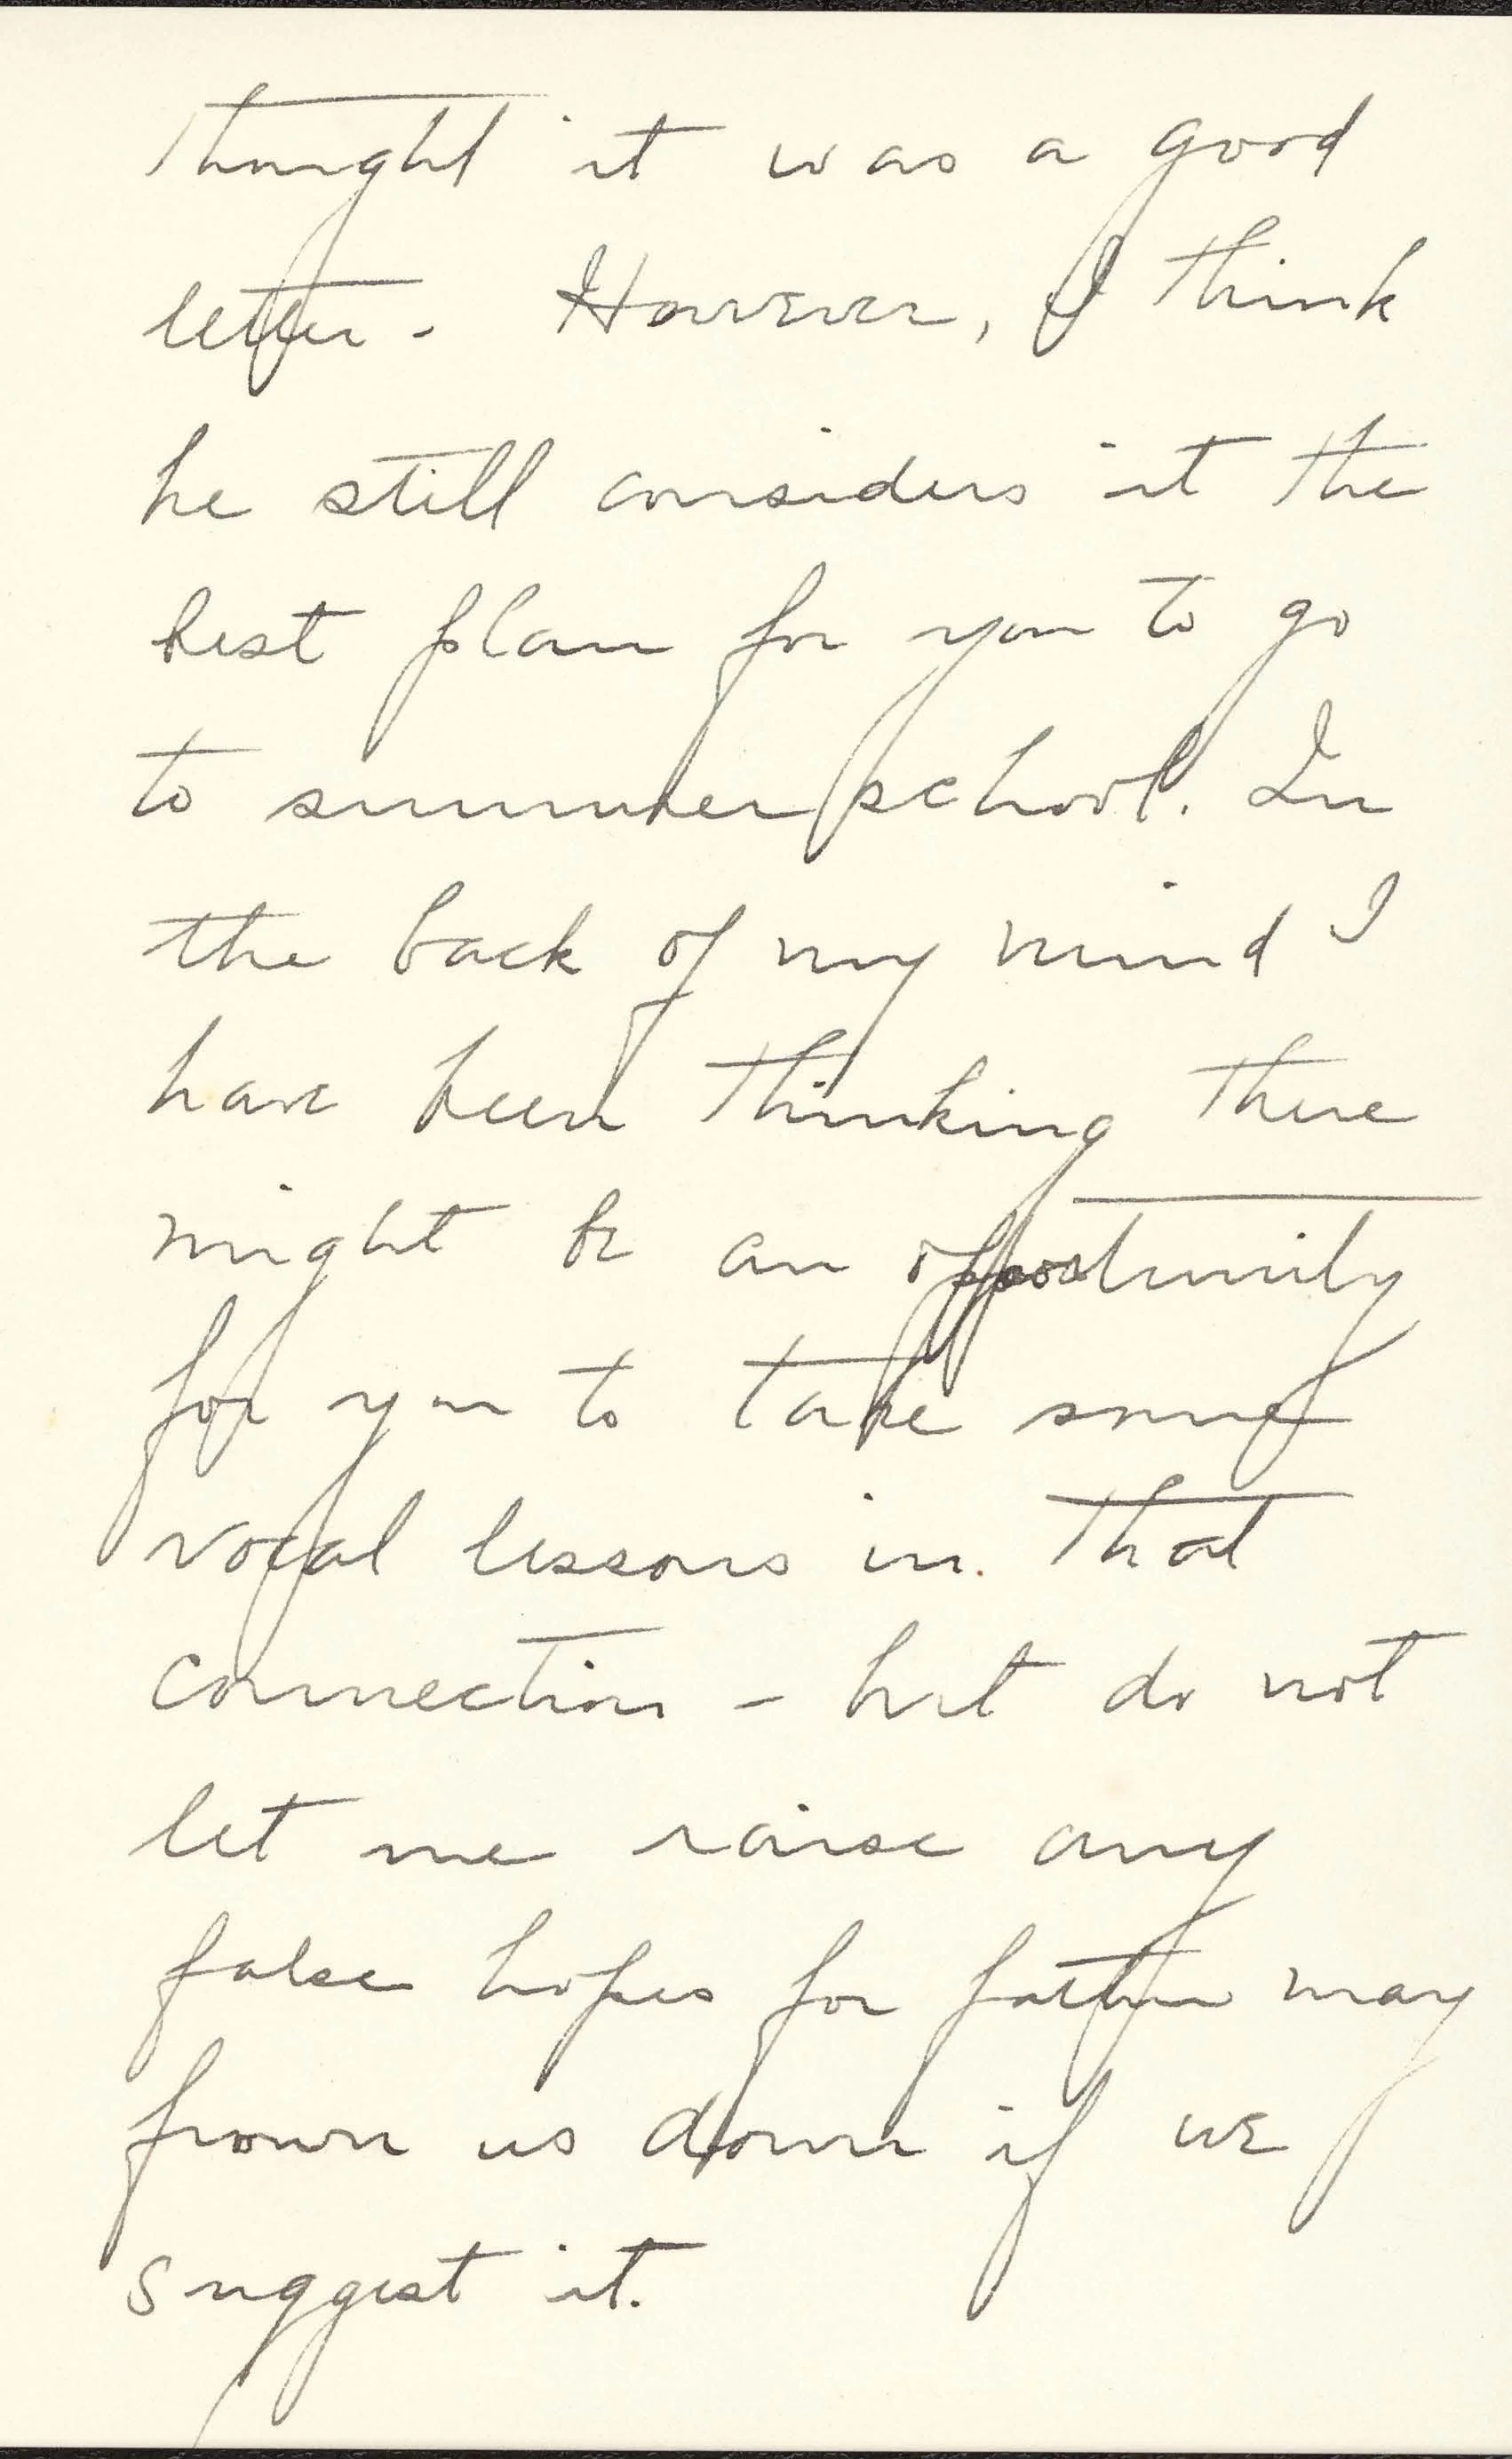 thought it was a good
letter - However, I think
he still considers it the
best plan for you to go
to summer school. In
the back of my mind I
have been thinking there
might be an opportunity
for you to take some
vocal lessons in that
connection - but do not
let me raise any
false hopes for father may
frown us down if we
suggest it.